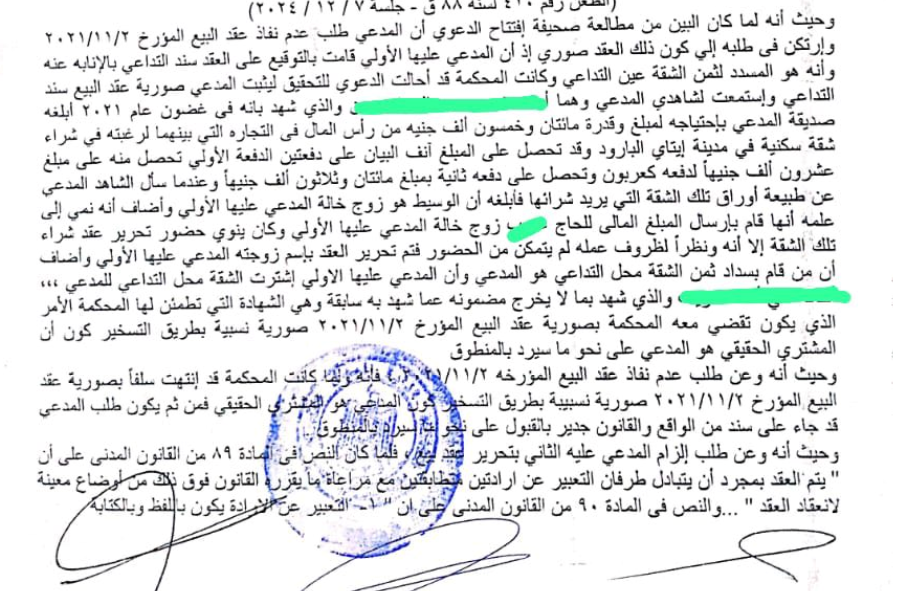 (الطعن رقم ٤١٠ لسنة ٨٨ ق - جلسة ٧ / ١٢ / ٢٠٢٤)
وحيث أنه لما كان البين من مطالعة صحيفة إفتتاح الدعوي أن المدعي طلب عدم نفاذ عقد البيع المؤرخ ٢٠٢١/١١/٢
وإرتكن فى طلبه إلي كون ذلك العقد صوري إذ أن المدعي عليها الأولي قامت بالتوقيع على العقد سند التداعي بالإنابه عنه
وأنه هو المسدد لثمن الشقة عين التداعي وكانت المحكمة قد أحالت الدعوي للتحقيق ليثبت المدعي صورية عقد البيع سند
التداعي وإستمعت لشاهدي المدعي وهما والذي شهد بانه فى غضون عام ٢٠٢١ أبلغه
صديقة المدعي بإحتياجه لمبلغ وقدرة مائتان وخمسون ألف جنيه من رأس المال فى التجاره التي بينهما لرغبته في شراء
شقة سكنية في مدينة إيتاي البارود وقد تحصل على المبلغ آنف البيان على دفعتين الدفعة الأولي تحصل منه على مبلغ
عشرون ألف جنيهاً لدفعه كعربون وتحصل على دفعه ثانية بمبلغ مائتان وثلاثون ألف جنيهاً وعندما سأل الشاهد المدعي
عن طبيعة أوراق تلك الشقة التي يريد شرائها فأبلغه أن الوسيط هو زوج خالة المدعي عليها الأولي وأضاف أنه نمي إلى
علمه أنها قام بإرسال المبلغ المالى للحاج زوج خالة المدعي عليها الأولي وكان ينوي حضور تحرير عقد شراء
تلك الشقة إلا أنه ونظراً لظروف عمله لم يتمكن من الحضور فتم تحرير العقد بإسم زوجته المدعي عليها الأولي وأضاف
أن من قام بسداد ثمن الشقة محل التداعي هو المدعي وأن المدعي عليها الاولي إشترت الشقة محل التداعي للمدعي ،،،
والذي شهد بما لا يخرج مضمونه عما شهد به سابقة وهي الشهادة التي تطمئن لها المحكمة الأمر
الذي يكون تقضي معه المحكمة بصورية عقد البيع المؤرخ ٢٠٢١/١١/٢ صورية نسبية بطريق التسخير كون أن
المشتري الحقيقي هو المدعي على نحو ما سيرد بالمنطوق
وحيث أنه وعن طلب عدم نفاذ عقد البيع المؤرخه ٢٠٢١/١١/٢ فإنه ولما كانت المحكمة قد إنتهت سلفاً بصورية عقد
البيع المؤرخ ٢٠٢١/١١/٢ صورية نسبيية بطريق التسخير كون المدعي هو المشتري الحقيقي فمن ثم يكون طلب المدعي
قد جاء على سند من الواقع والقانون جدير بالقبول على نحو ما سيرد بالمنطوق
وحيث أنه وعن طلب إلزام المدعي عليه الثاني بتحرير عقد بيع ، فلما كان النص فى المادة ٨٩ من القانون المدنى على أن
" يتم العقد بمجرد أن يتبادل طرفان التعبير عن ارادتين متطابقتين مع مراعاة ما يقرره القانون فوق ذلك من أوضاع معينة
لانعقاد العقد " ...والنص فى المادة ٩٠ من القانون المدنى على ان " ١- التعبير عن الإرادة يكون باللفظ وبالكتابة